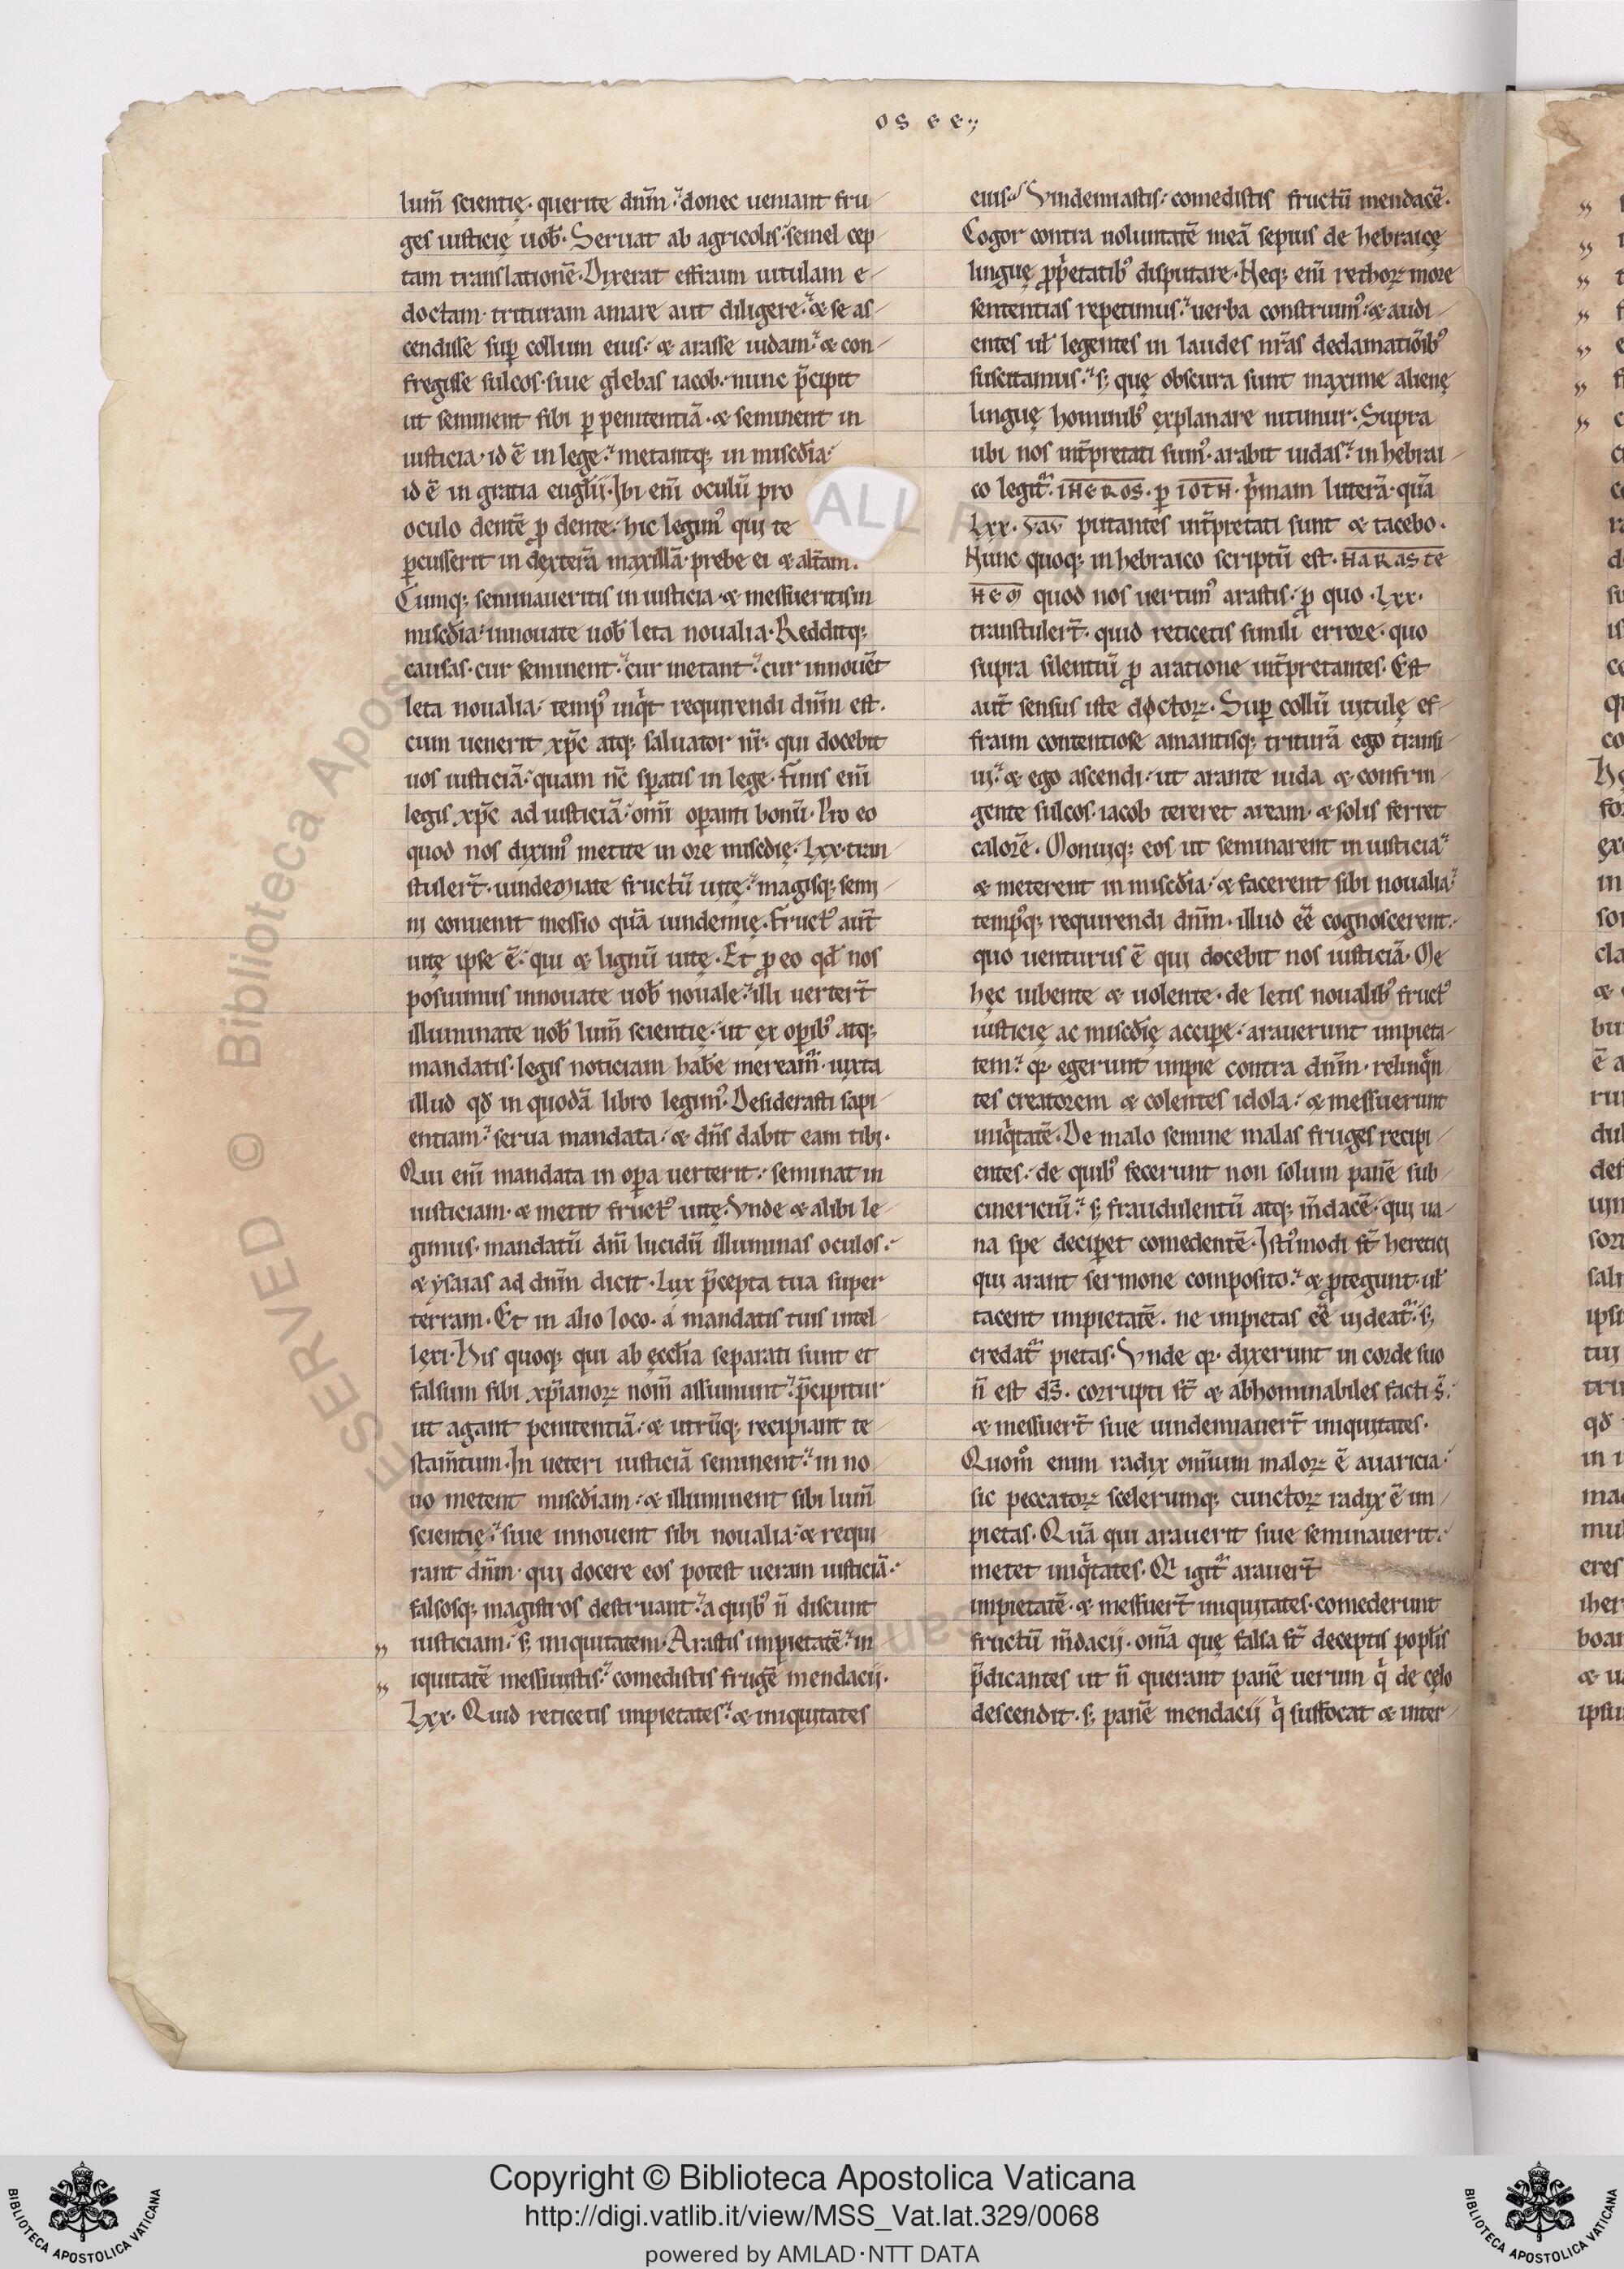 OSEE
lum̄ scientię· querite dn̄m· donec ueniant fru
ges iusticię uob̄· Seruat ab agricolis semel cep
tam translationē· Dixerat effraim uitulam e
doctam· trituram amare aut diligere· & se as
cendisse sup̱ collum eius· & arasse iudam· & con
fregisse sulcos· siue glebas iacob· nunc p̄cipit
ut seminent sibi p̱ penitentiā· & seminent in
iusticia· id ē in lege· metantq; in misc̄dia·
id ē in gratia euglīi· Ibi enī oculū pro
oculo dentē ꝓ dente· hic legimꝰ qui te
p̱cusserit in dexterā maxillā· prebe ei & alt̄am·
Cumq; seminaueritis in iusticia· & messueritis in
misc̄dia· innouate uob̄ leta noualia· Redditq;
causas· cur seminent· cur metant· cur innouēt
leta noualia· tempꝰ inqͥt requirendi dn̄m est·
cum uenerit xp̄c atq; saluator nr̄· qui docebit
uos iusticiā· quam nc̄ sp̱atis in lege· finis enī
legis xp̄c ad iusticiā· omī op̱anti bonū· Pro eo
quod nos diximꝰ metite in ore misc̄die· Lxx· tran
stuler̄t· uindemiate fructū uitę· magisq; semi
ni conuenit messio quā uindemię· Fructꝰ aūt
uitę ipse ē· qui & lignū uitę· Et ꝓ eo qd̄ nos
posuimus innouate uob̄ nouale· illi uerter̄t
illuminate uob̄ lum̄ scientię· ut ex op̱ibꝰ atq;
mandatis· legis noticiam hab̄e mereamͬ· iuxta
illud qd̄ in quodā libro legimꝰ· Desiderasti sapi
entiam· serua mandata· & dn̄s dabit eam tibi·
Qui enī mandata in op̱a uerterit· seminat in
iusticiam· & metit fructꝰ uitę· Vnde & alibi le
gimus· mandatū dn̄i lucidū illuminas oculos·
& ysaias ad dn̄m dicit· Lux p̄cepta tua super
terram· Et in alio loco· a mandatis tuis intel
lexi· His quoq; qui ab ęcclīa separati sunt et
falsum sibi xp̄ianoꝝ nom̄ assumunt· p̄cipitur
ut agant penitentiā· & utrūq; recipiant te
stam̄tum· In ueteri iusticiā seminent· in no
uo metent misc̄diam· & illuminent sibi lum̄
scientię· siue innouent sibi noualia· & requi
rant dn̄m· qui docere eos potest ueram iusticiā·
falsosq; magistros destruant· a quibꝰ n̄ discunt
iusticiam· s; iniquitatem· Arastis impietatē· in
iquitatē messuistis· comedistis frugē mendacij·
Lxx· Quid reticetis impietates· & iniquitates
eius· Vindemiastis· comedistis fructū mendacē·
Cogor contra uoluntatē meā sepius de hebraicę
linguę ꝓpͥetatibꝰ disputare· Neq; enī rethoꝝ more
sententias repetimus· uerba construimꝰ· & audi
entes uł legentes in laudes nr̄as declamatiōibꝰ
suscitamus· s; quę obscura sunt maxime alienę
linguę hominibꝰ explanare nitimur· Supra
ubi nos int̄pretati sumꝰ· arabit iudas· in hebrai
co legitͬ· IHEROS· p̱ IOTH· pͥmam litterā· quā
Lxx· VAV putantes int̄pretati sunt & tacebo·
Nunc quoq; in hebraico scriptū est· HARASTE
HEM quod nos uertimꝰ arastis· ꝓ quo ·Lxx·
transtuler̄t· quid reticetis simili errore· quo
supra silentiū ꝓ aratione int̄pretantes· Est
aūt sensus iste doctoꝝ· Sup̱ collū uitulę ef
fraim contentiose amantisq; triturā ego transi
ui· & ego ascendi· ut arante iuda & confrin
gente sulcos· iacob tereret aream· & solis ferret
calorē· Monuiq; eos ut seminarent in iusticia·
& meterent in misc̄dia· & facerent sibi noualia·
tempꝰq; requirendi dn̄m· illud eē cognoscerent·
quo uenturus ē qui docebit nos iusticiā· Me
hęc iubente & uolente· de letis noualibꝰ fructꝰ
iusticię ac misc̄dię accipe· arauerunt impieta
tem· qꝛ egerunt impie contra dn̄m· relinqͣn
tes creatorem & colentes idola· & messuerunt
iniqͥtatē· De malo semine malas fruges recipi
entes· de quibꝰ fecerunt non solum panē sub
cinericiū· s; fraudulentū atq; m̄dacē· qui ua
na spe decip̱et comedentē· Istiꝰmodi st̄ heretici
qui arant sermone composito· & ꝓtegunt· uł
tacent impietatē· ne impietas eē uideatͬ· s;
credatͬ pietas· Vnde qꝛ dixerunt in corde suo
n̄ est ds̄· corrupti st̄ & abhominabiles facti s̄·
& messuer̄t siue uindemiauer̄t iniquitates·
Quom̊ enim radix omīum maloꝝ ē auaricia·
sic peccatoꝝ scelerumq; cunctoꝝ radix ē im
pietas· Quā qui arauerit siue seminauerit·
metet iniqͥtates· Qͥ igitͬ arauer̄t
impietatē· & messuer̄t iniquitates· comederunt
fructū m̄dacij· om̄a quę falsa st̄ deceptis popłis
p̄dicantes ut n̄ querant panē uerum qͥ de cęlo
descendit· s; panē mendacij qͥ suffocat & inter
Copyright © Biblioteca Apostolica Vaticana
http://digi.vatlib.it/view/MSS_Vat.lat.329/0068
powered by AMLAD·NTT DATA
BIBLIOTECA APOSTOLICA VATICANA
BIBLIOTECA APOSTOLICA VATICANA